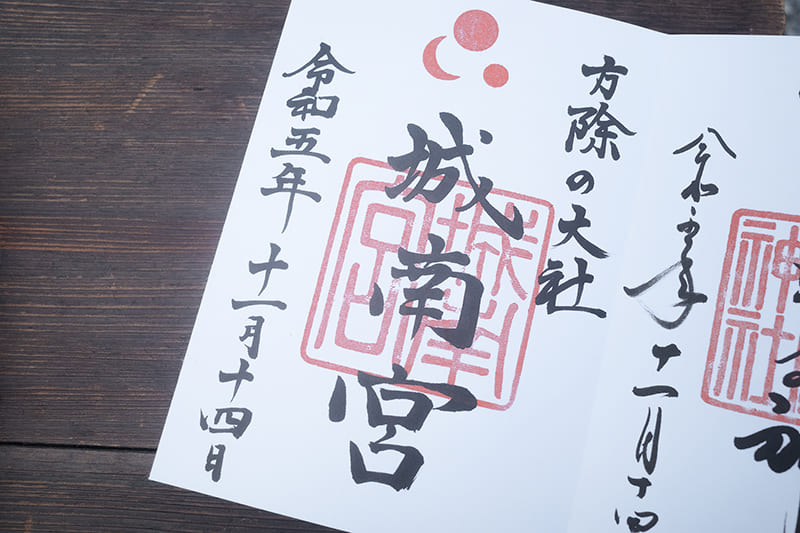 方除の大社
城南宮
令和五年 十一月十四日
令和五年 十一月十四
神社